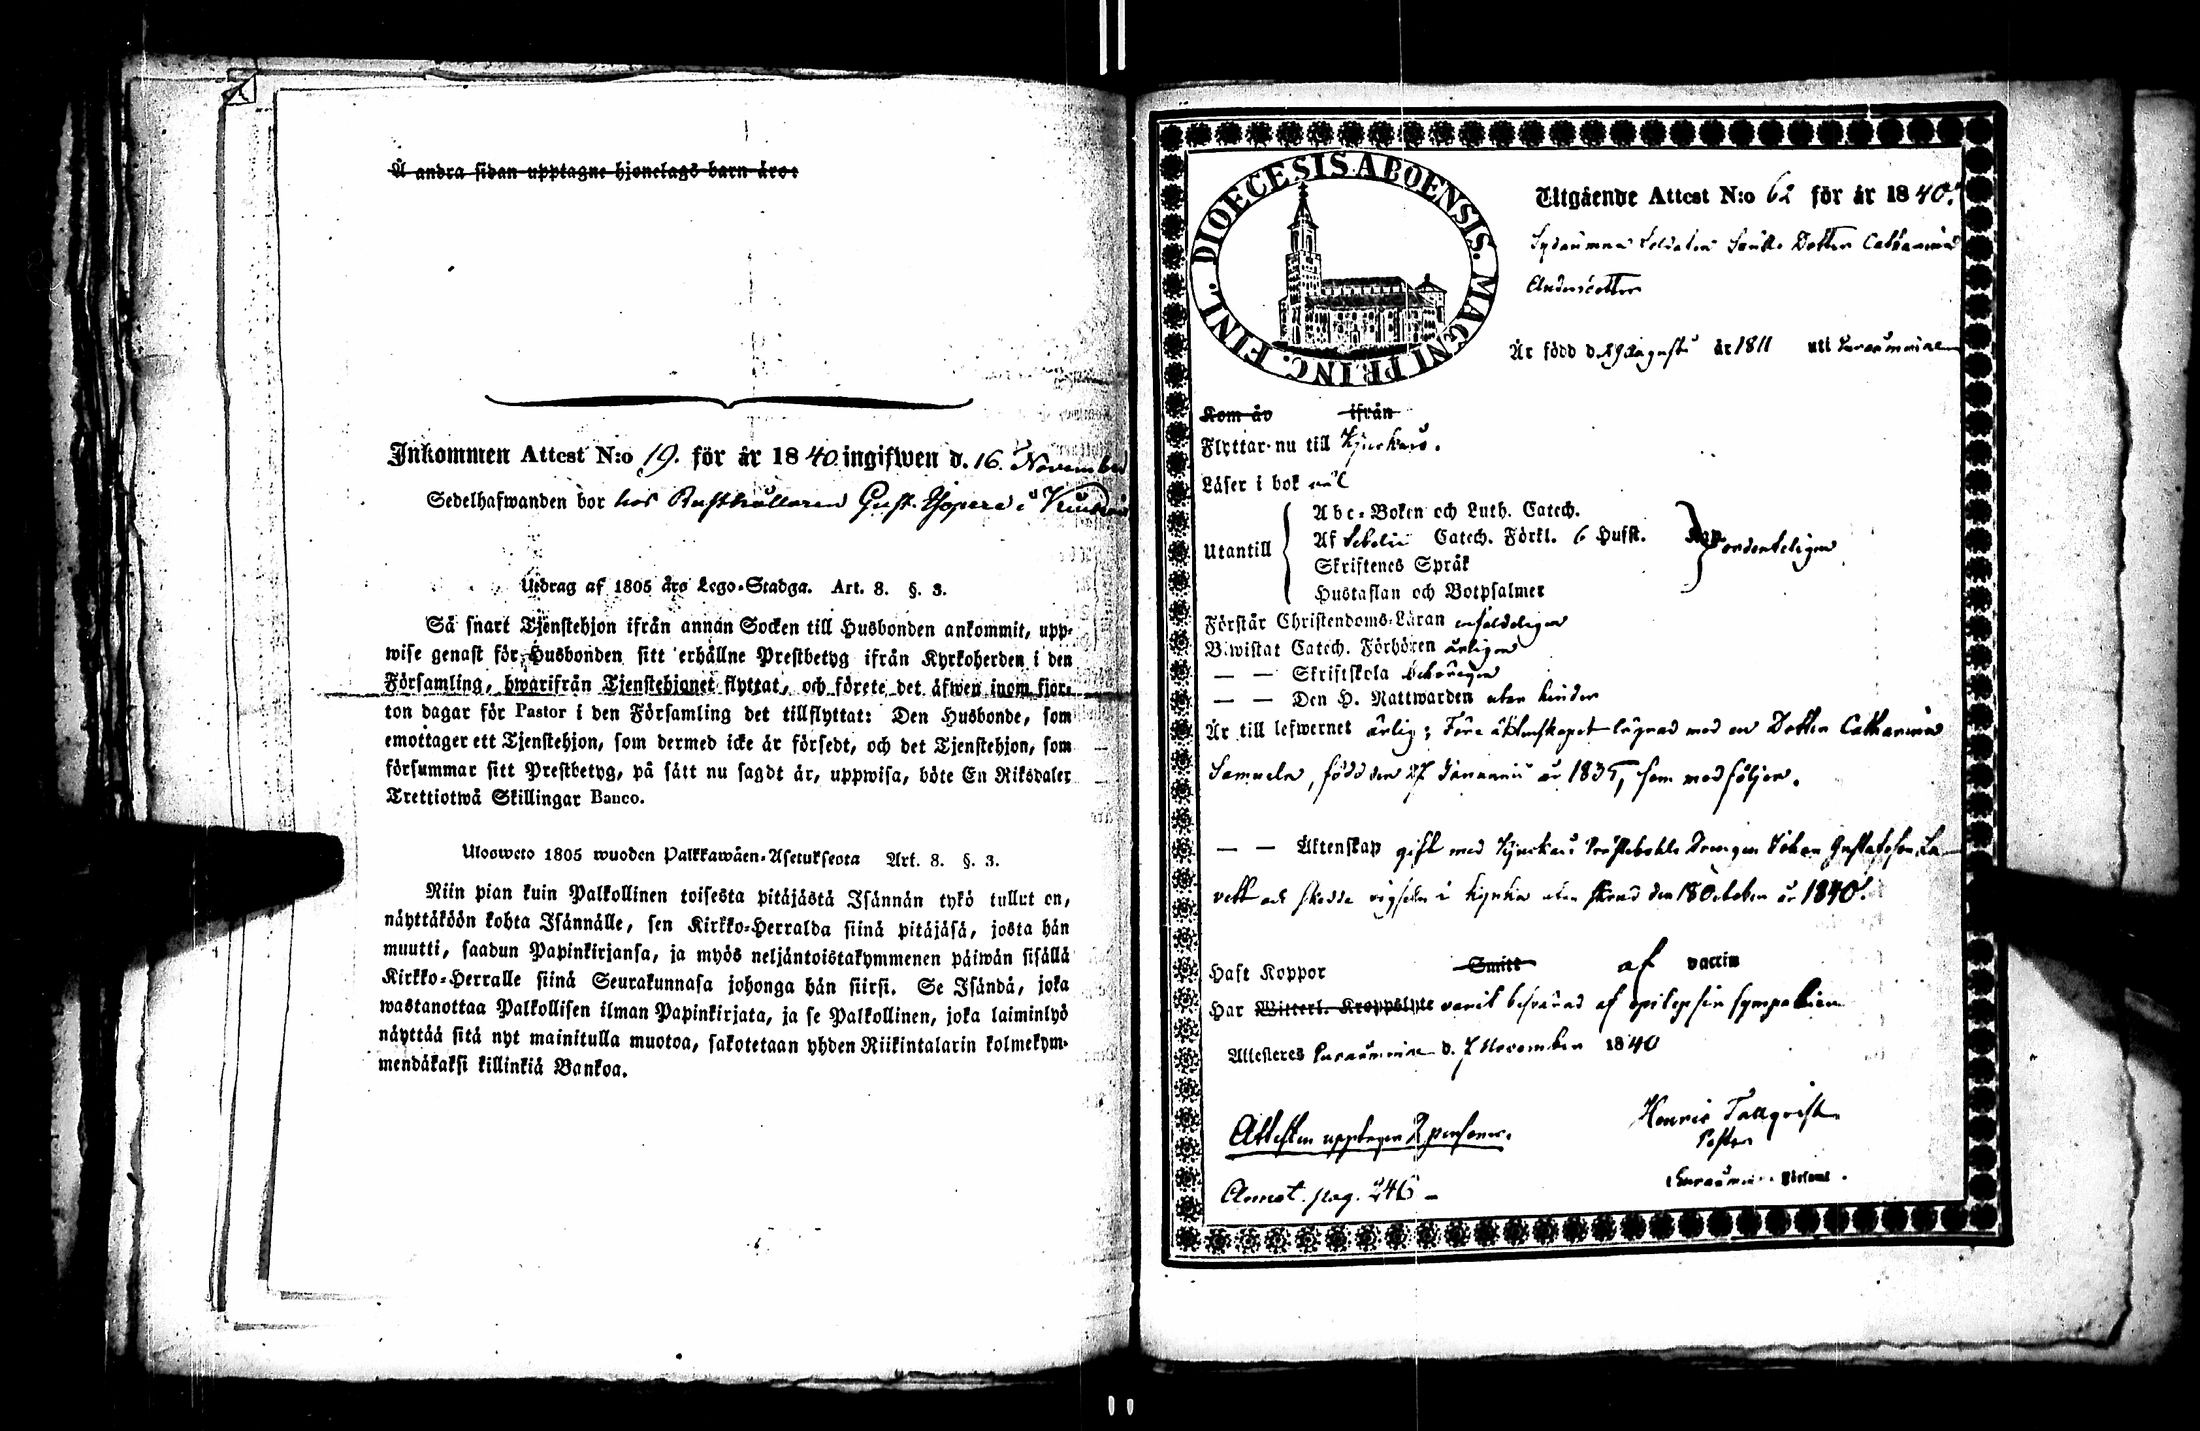 Å andra sidan upptagne hjonelags barn äro:
Inkommen Attest N:o 19. för år 1840 ingifwen d. 16. November
Sedelhafwanden bor hos Rusthållaren Gust.
Utdrag af 1805 års Lego-Stadga. Art. 8. §. 3.
Så snart Tjenstehjon ifrån annan Socken till Husbonden ankommit, upp-
wise genast för Husbonden sitt erhållne Prestbetyg ifrån Kyrkoherden i den
Församling, hwarifrån Tjenstehjonet flyttat, och förete det äfwen inom fjor-
ton dagar för Pastor i den Församling det tillflyttat: Den Husbonde, som
emottager ett Tjenstehjon, som dermed icke är försedt, och det Tjenstehjon, som
försummar sitt Prestbetyg, på sätt nu sagdt är, uppwisa, böte En Riksdaler
Trettiotwå Skillingar Banco.
Ulosweto 1805 wuoden Palkkawäen-Asetuksesta Art. 8. §. 3.
Niin pian kuin Palkollinen toisesta pitäjästä Isännän tykö tullut on,
näyttäköön kohta Isännälle, sen Kirkko-Herralda siinä pitäjäsä, josta hän
muutti, saadun Papinkirjansa, ja myös neljäntoistakymmenen päiwän sisällä
Kirkko-Herralle siinä Seurakunnasa johonga hän siirsi. Se Isändä, joka
wastanottaa Palkollisen ilman Papinkirjata, ja se Palkollinen, joka laiminlyö
näyttää sitä nyt mainitulla muotoa, sakotetaan yhden Riikintalarin kolmekym-
mendäkaksi killinkiä Bankoa.
DIOECESIS. ABOENSIS. MAGNI PRINC. FINL.
Utgående Attest N:o 62 för år 1840.
Soldaten Dotter Catharina
Andersdotter
Är född d. 29 Augusti år 1811 uti Euraåminne
Kom år ifrån
Flyttar nu till Kjuckais.
Läser i bok wäl
Utantill
Abc-Boken och Luth. Catech.
Af Sebelii Catech. Förkl. 6 Hufst.
Skriftenes Språk
Hustaflan och Botpsalmer
ordenteligen
Förstår Christendoms-Läran enfaldeligen
Biwistat Catech. Förhören årligen
— — Skriftskola behörigen
— — Den H. Nattwarden utan hinder
Är till lefwernet ärlig; Före äktenskapet lägrad med en Dotter Catharina
Samuels, född den 27 Januarii år 1835, som medföljer.
— — Äktenskap gift med Kjuckais Drengen Johan Gustafsson
och skedde wigseln i Kjukais utan den 18 October år 1840.
Haft Koppor Smitt af vaccin
Har Witterl. Kroppslyte varit beswärad af epilepsia sympatica
Attesteras Euraåminne d. 7 November 1840
Henric Tallqvist
Pastor
Euraåminne Församl.
Attesten upptager 2 personer.
Annot. pag. 246 –